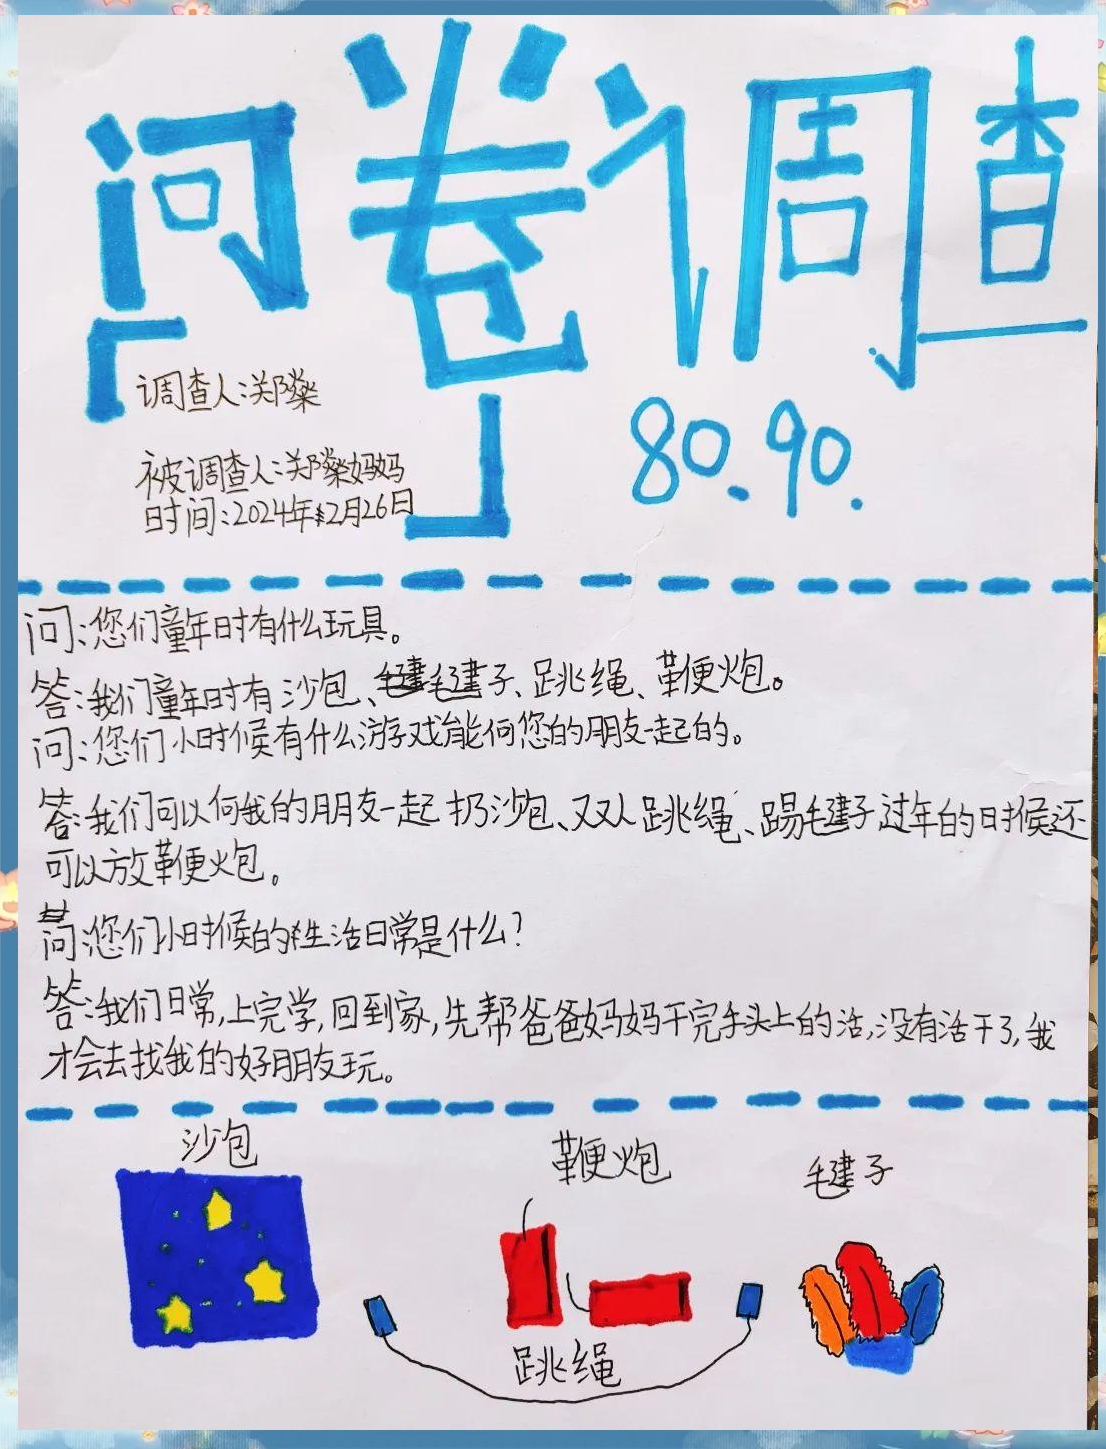 问卷调查
调查人:郑燊
被调查人:郑燊妈妈
时间:2024年2月26日
80、90.
问:您们童年时有什么玩具。
答:我们童年时有沙包、毽子、跳绳、鞭炮。
问:您们小时候有什么游戏能何您的朋友一起的。
答:我们可以何我的朋友一起扔沙包、双人跳绳、踢毽子过年的时候还
可以放鞭炮。
问:您们小时候的生活日常是什么?
答:我们日常,上完学,回到家,先帮爸爸妈妈干完手头上的活,没有活干了,我
才会去找我的好朋友玩。
沙包
鞭炮
毽子
跳绳